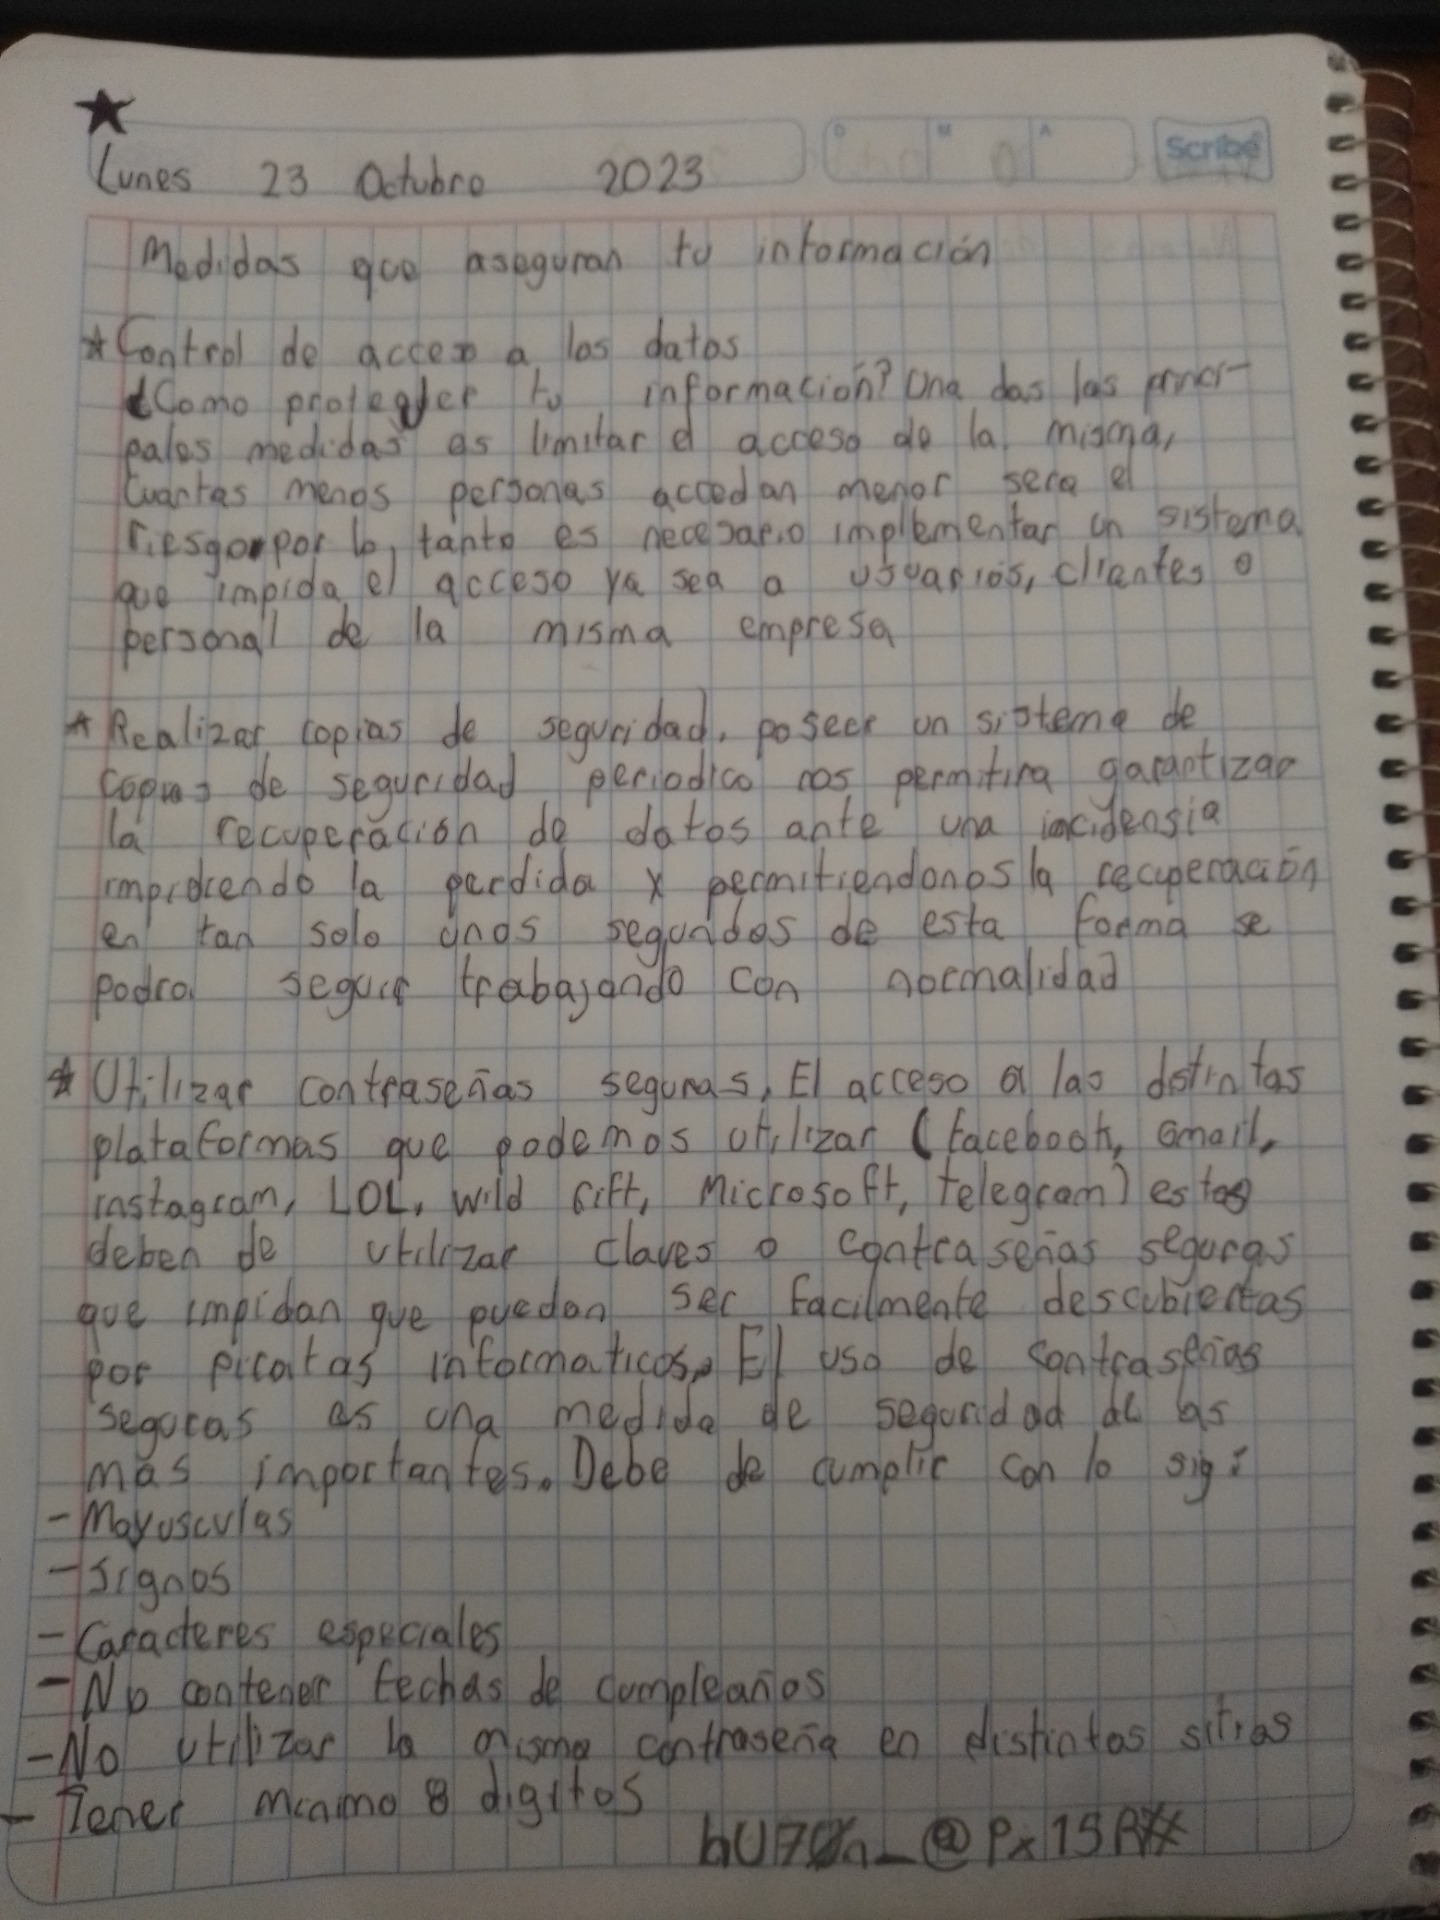 D M A
Scribe
Lunes 23 Octubre 2023
Medidas que aseguran tu información
*Control de acceso a los datos
¿Como proteger tu información? Una das las princi-
pales medidas es limitar el acceso de la misma,
cuantas menos personas accedan menor sera el
riesgo por lo, tanto es necesario implementar un sistema
que impida el acceso ya sea a usuarios, clientes o
personal de la misma empresa
* Realizar copias de seguridad, poseer un sistema de
copias de seguridad periodico nos permitira garantizar
la recuperación de datos ante una incidensia
impidiendo la perdida y permitiendonos la recuperación
en tan solo unos segundos de esta forma se
podra seguir trabajando con normalidad
* Utilizar contraseñas seguras, El acceso a las distintas
plataformas que podemos utilizar (facebook, Gmail,
instagram, LOL, wild rift, Microsoft, telegram) estas
deben de utilizar claves o contraseñas seguras
que impidan que puedan ser facilmente descubiertas
por piratas informaticos. El uso de contraseñas
seguras es una medida de seguridad de las
más importantes. Debe de cumplir con lo sig:
- Mayusculas
- Signos
- Caracteres especiales
- No contener fechas de cumpleaños
- No utilizar la misma contraseña en distintos sitios
- Tener minimo 8 digitos